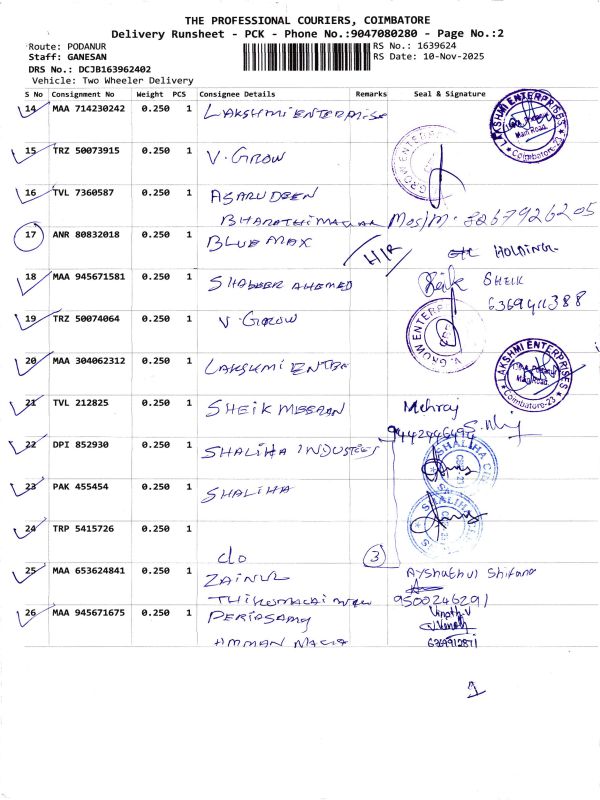 THE PROFESSIONAL COURIERS, COIMBATORE
Delivery Runsheet - PCK - Phone No.:9047080280 - Page No.:2
Route: PODANUR
RS No.: 1639624
Staff: GANESAN
RS Date: 10-Nov-2025
DRS No.: DCJB163962402
Vehicle: Two Wheeler Delivery
S No Consignment No Weight PCS Consignee Details Remarks Seal & Signature
14 MAA 714230242 0.250 1 LAKSHMI ENTERPRISE LAKSHMI ENTERPRISES Main Road, Coimbatore-23
15 TRZ 50073915 0.250 1 V. GROW V. GROW ENTERP
16 TVL 7360587 0.250 1 ASARUDEEN
BHARATHI NAGAR
17 ANR 80832018 0.250 1 BLUE MAX H/R HOLDING
18 MAA 945671581 0.250 1 SHABEER AHEMED Sheik SHEIK
6369411388
19 TRZ 50074064 0.250 1 V. GROW V. GROW ENTERP
20 MAA 304062312 0.250 1 LAKSHMI ENTER LAKSHMI ENTERPRISES Main Road, Coimbatore-23
21 TVL 212825 0.250 1 SHEIK MEERAN Mehraj
9442446494
22 DPI 852930 0.250 1 SHALIHA INDUSTRES SHALIHA
23 PAK 455454 0.250 1 SHALIHA SHALIHA
24 TRP 5415726 0.250 1
3
C/o
25 MAA 653624841 0.250 1 ZAINUL Ayshathul Shifana
9500246291
26 MAA 945671675 0.250 1 PERIASAMY Vinoth.V
Vinoth
AMMAN NAGAR 6369912871
1